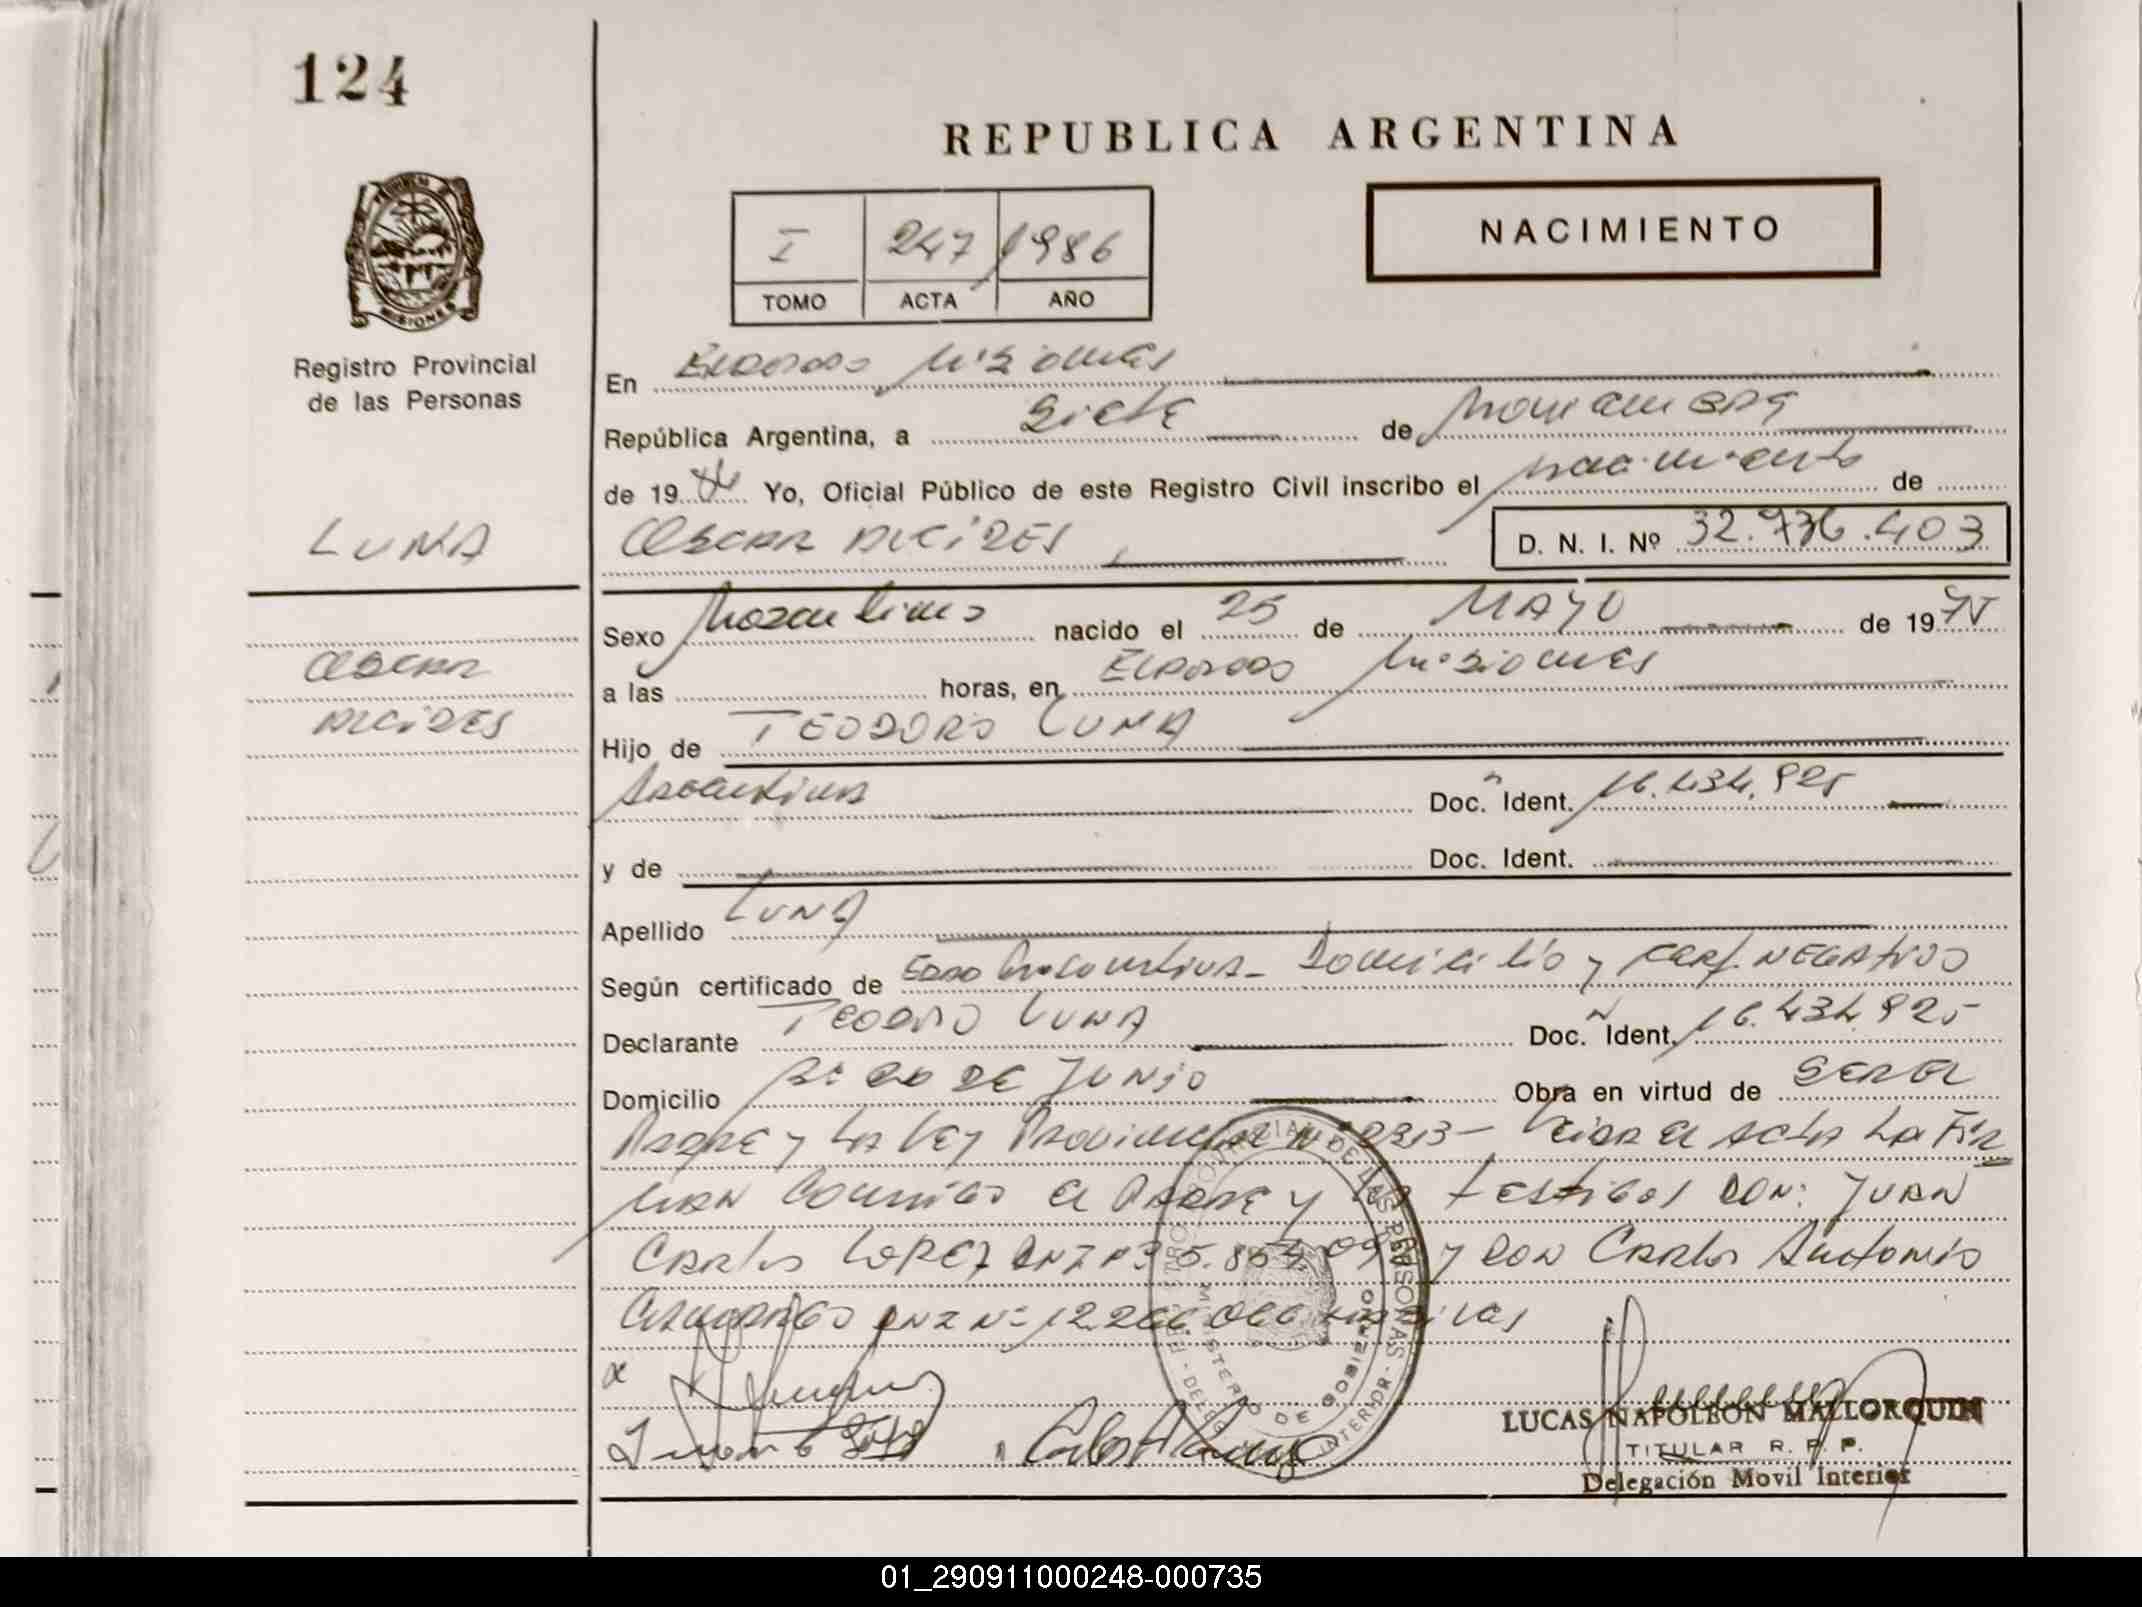 124
REPUBLICA ARGENTINA
NACIMIENTO
I 247 1986
TOMO ACTA AÑO
Registro Provincial
de las Personas
En Eldorado Misiones
República Argentina, a Siete de Noviembre
de 19 86 Yo, Oficial Público de este Registro Civil inscribo el nacimiento de
LUNA
OSCAR ALCIDES D. N. I. Nº 32.736.403
Sexo Masculino nacido el 25 de MAYO de 19
OSCAR
a las horas, en Eldorado Misiones
ALCIDES
Hijo de TEODORO LUNA
Argentina Doc. Ident. 16.434.925
y de Doc. Ident.
Apellido LUNA
Según certificado de Edad Domicilio y Cert. NEGATIVO
Declarante TEODORO LUNA Doc. Ident. 16.434.925
Domicilio 20 DE JUNIO Obra en virtud de SER EL
PADRE y LA LEY Provincial Nº Leida el Acta La Fir
man Conmigo el PADRE y los testigos DON: JUAN
Carlos LOPEZ DNI Nº y DON Carlos Antonio
DNI Nº 12.266.066 habiles
REGISTRO PROVINCIAL DE LAS PERSONAS
MINISTERIO DE GOBIERNO
INTERIOR
LUCAS NAPOLEON MALLORQUIN
TITULAR R. P. P.
Delegación Movil Interior
01_290911000248-000735